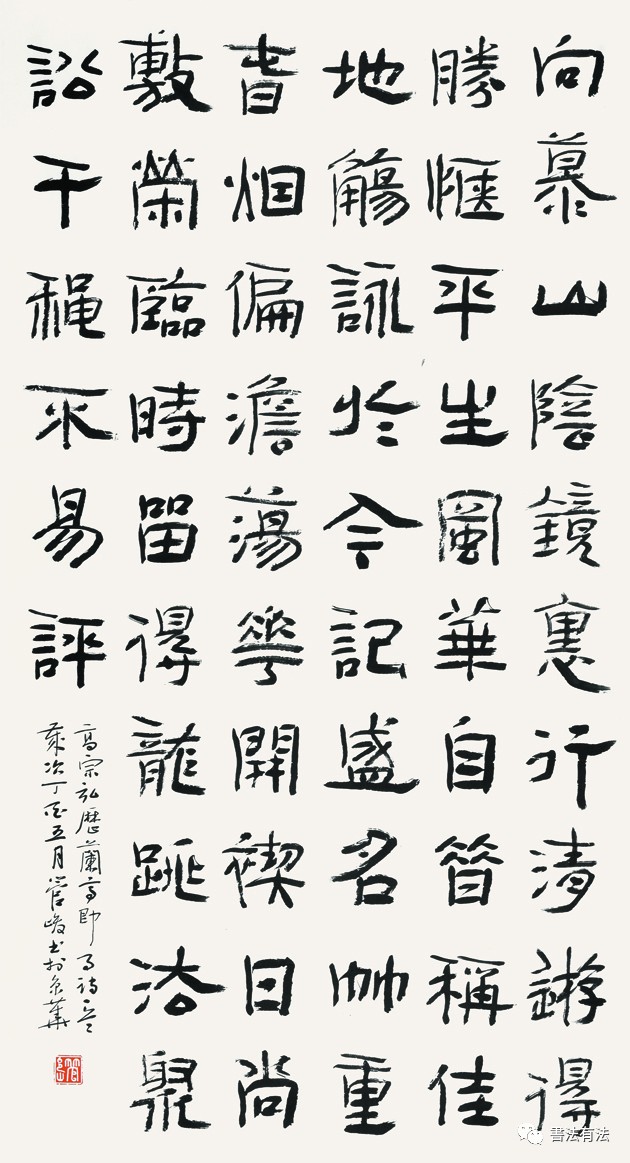 向慕山陰鏡裏行清遊得
勝愜平生風華自昔稱佳
地觴詠於今記盛名竹重
旾烟偏澹蕩華開禊日尚
敷榮臨時留得龍跳法聚
訟千穐不易評
高宗弘歷蘭亭即事詩一首
歲次丁酉五月管峻書於京華
書法有法